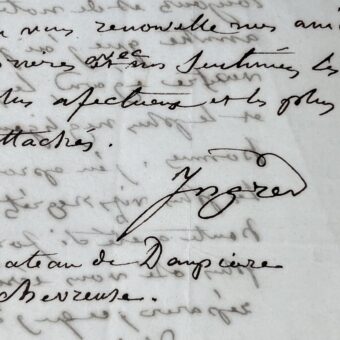 vous renouvelle mes
avec
nos Sentimens les
plus afectueux et les plus
attachés.
Ingres
ateau de Dampierre
chevreuse.